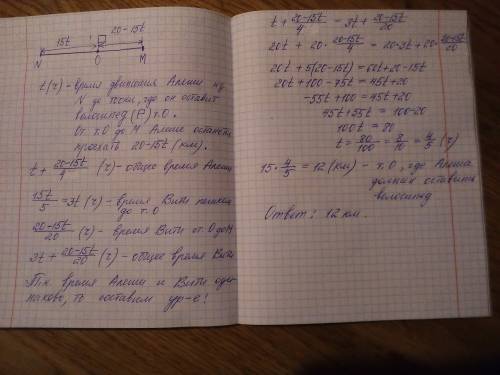 20-15t
15t
N O M
t(ч) - время движения Алеши из
N до точки, где он оставит
велосипед (P) т.О.
От т.О до M Алеше останется
проехать 20-15t (км).
t + (20-15t)/4 (ч) - общее время Алеши
15t/5 = 3t (ч) - время Вити пешком
до т.О
(20-15t)/20 (ч) - время Вити от О до M
3t + (20-15t)/20 (ч) - общее время Вити
Т.к. время Алеши и Вити оди-
наково, то составим ур-е!
t + (20-15t)/4 = 3t + (20-15t)/20
20t + 20·(20-15t)/4 = 20·3t + 20·(20-15t)/20
20t + 5(20-15t) = 60t + 20-15t
20t + 100 - 75t = 45t + 20
-55t + 100 = 45t + 20
45t + 55t = 100-20
100t = 80
t = 80/100 = 8/10 = 4/5 (ч)
15·4/5 = 12 (км) - т.О, где Алеша
должен оставить
велосипед
Ответ: 12 км.